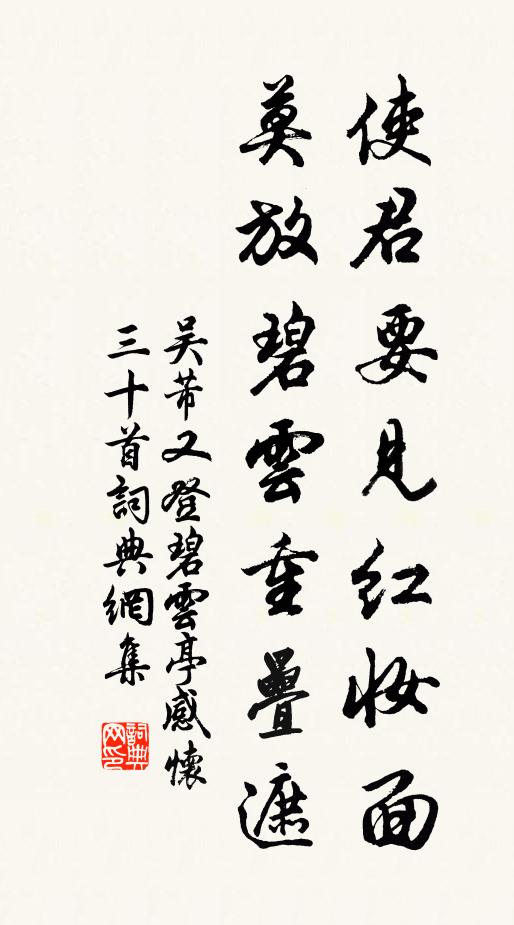 使君要見紅妝面
莫放碧雲重疊遮
吴芾又登碧雲亭感懷
三十首詞典網集
詞典網印